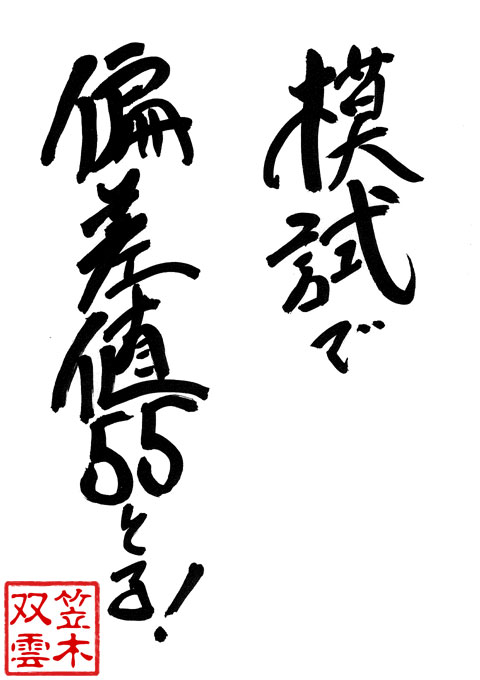 模試で
偏差値55とる!
笠木
双雲